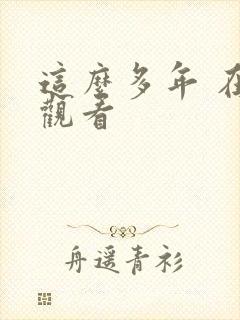 這麼多年 在
觀看
舟遥青衫